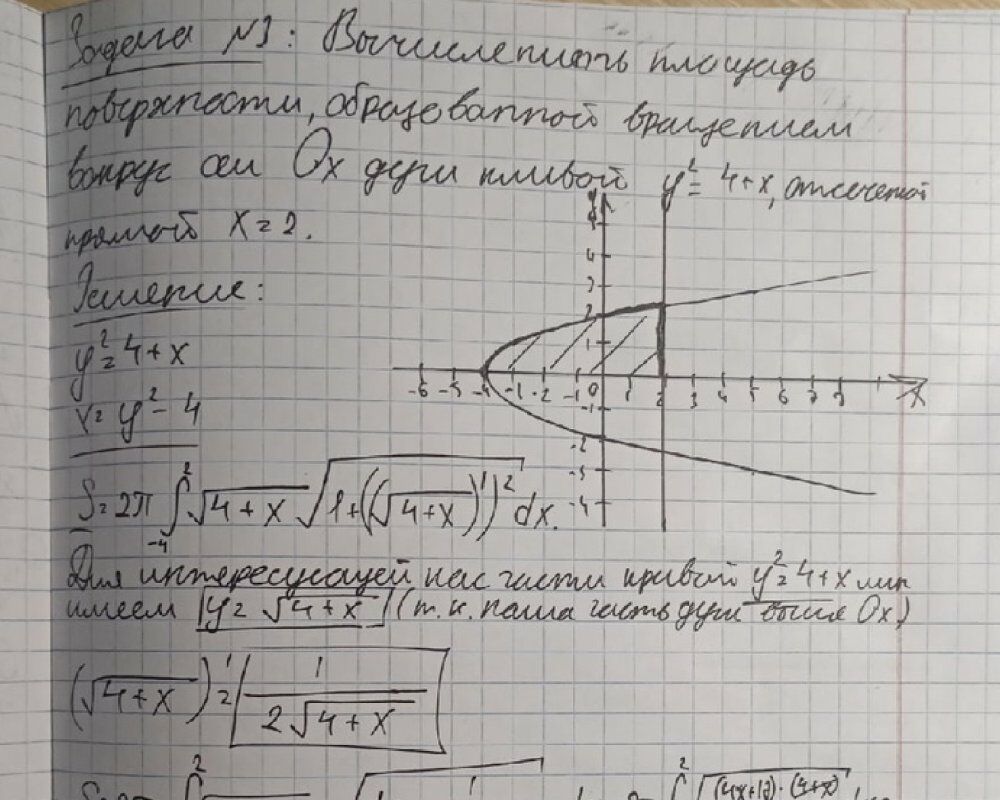 Задача №3: Вычислить площадь
поверхности, образованной вращением
вокруг оси Ox дуги кривой y² = 4+x, отсеченной
прямой x = 2.
Решение:
y² = 4+x
x = y² - 4
S = 2π ∫₋₄² √(4+x) √(1+((√(4+x))')²) dx.
Для интересующей нас части кривой y² = 4+x мы
имеем y = √(4+x) (т.к. наша часть дуги выше Ox)
(√(4+x))' = 1/(2√(4+x))
4
3
2
1
-6 -5 -4 -3 -2 -1 0 1 2 3 4 5 6 7 8 X
-1
-2
-3
-4